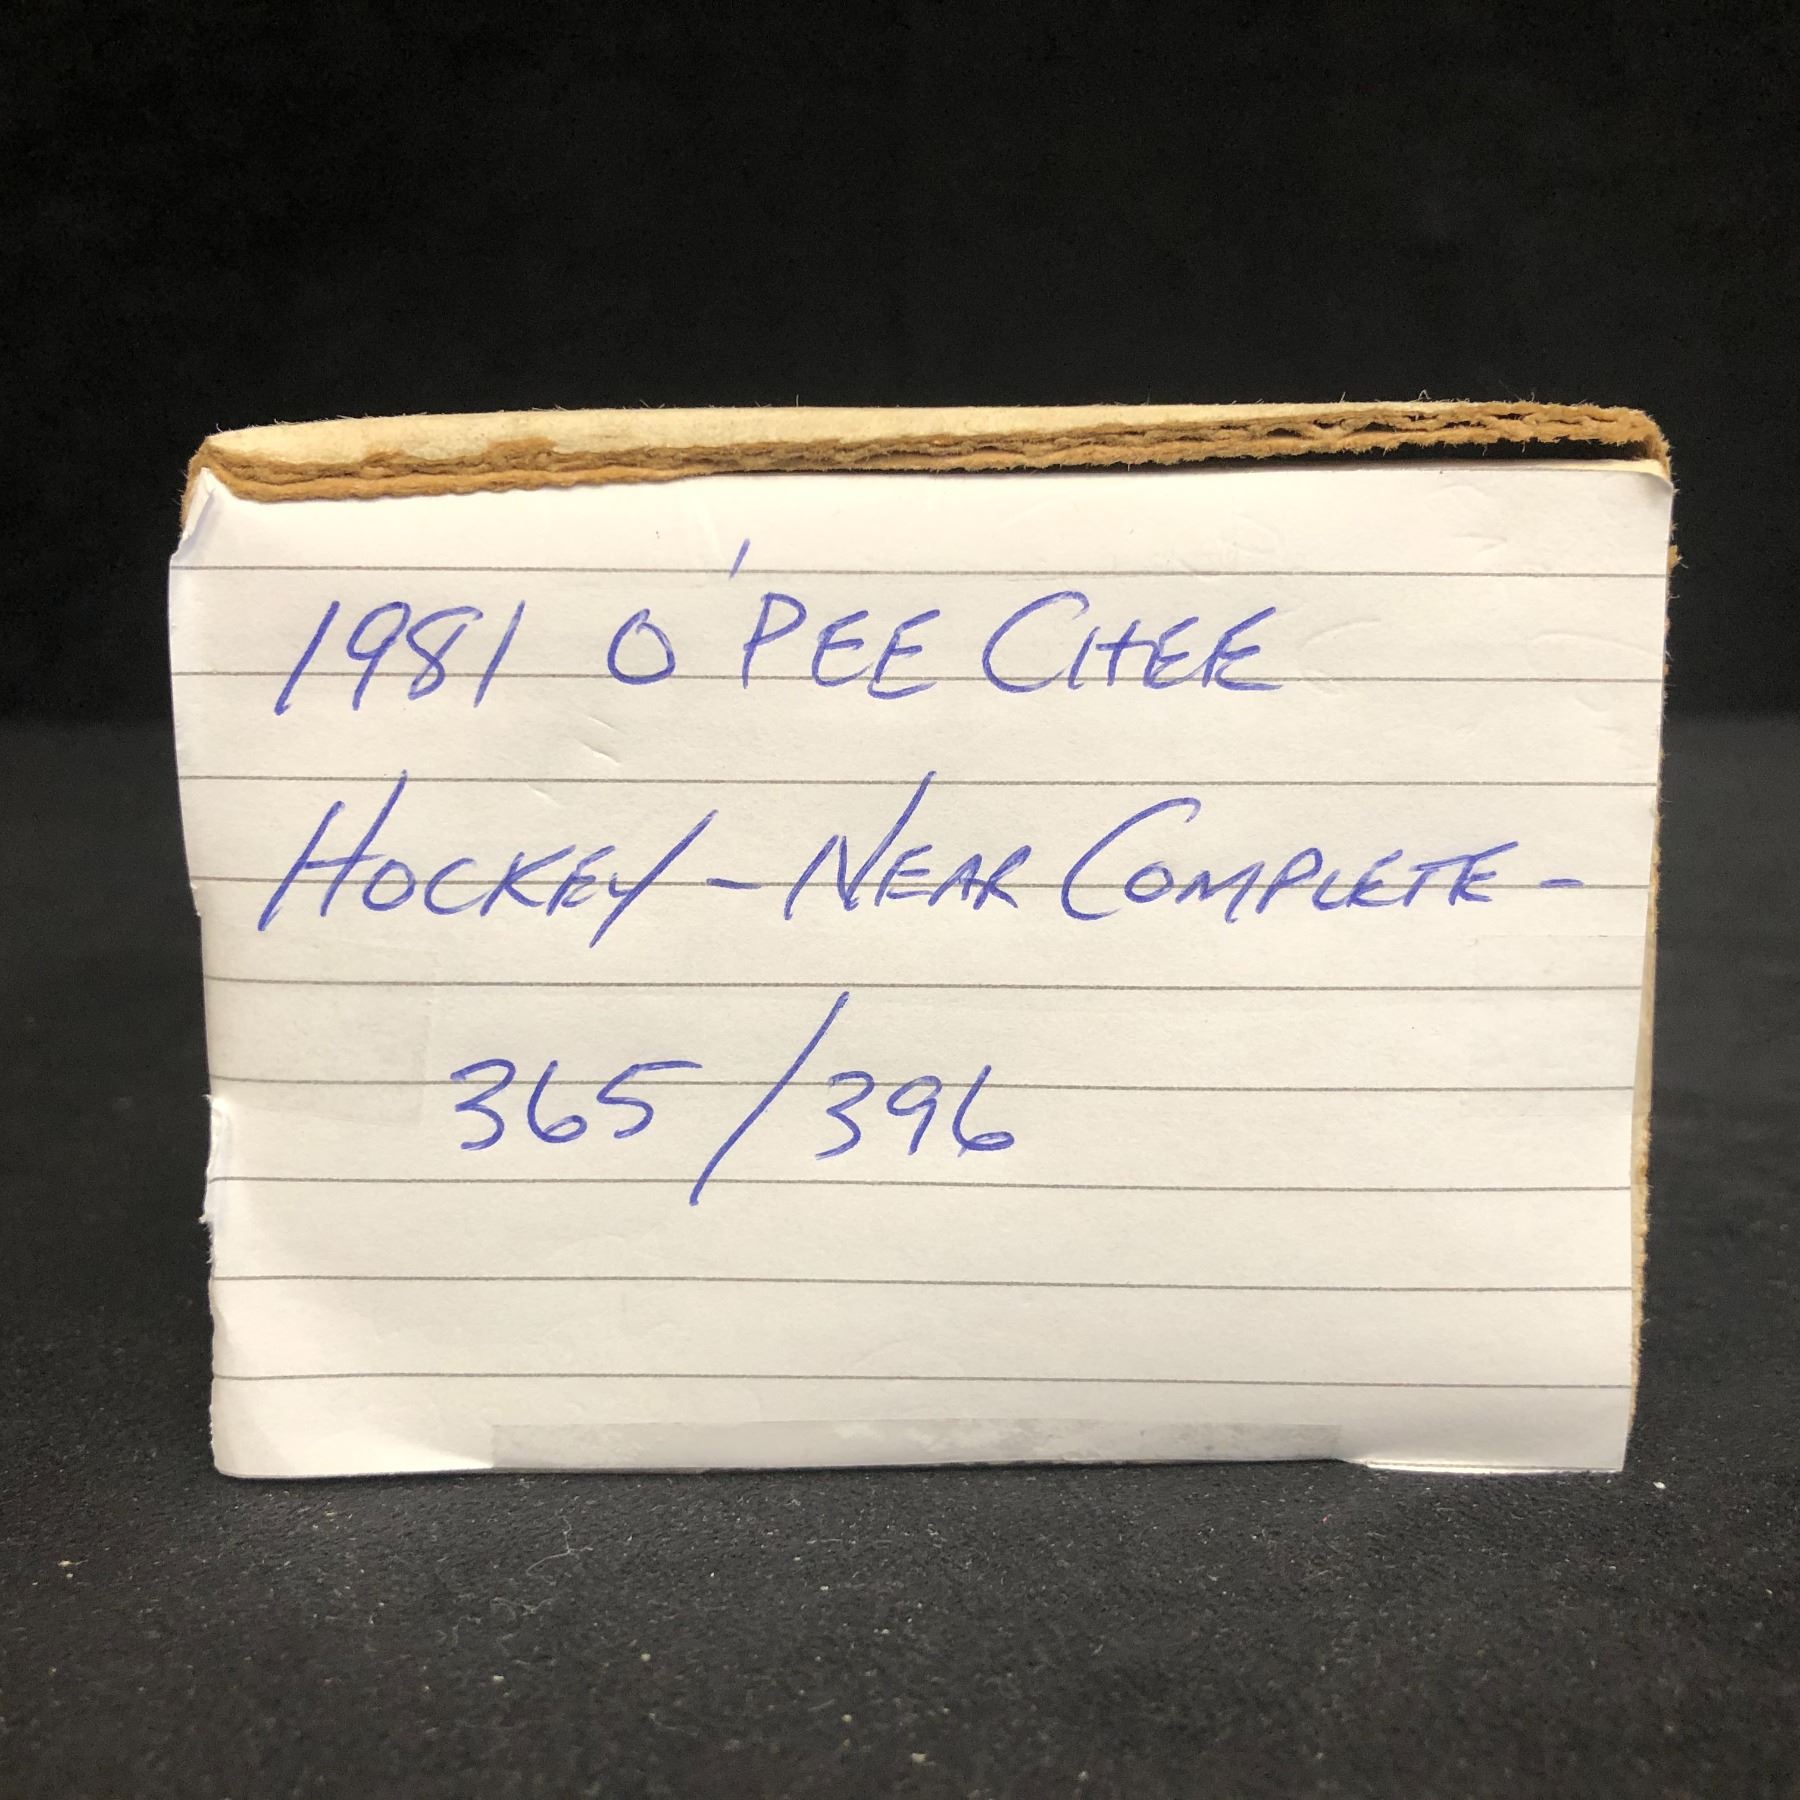 1981 O'PEE CHEE
HOCKEY - NEAR COMPLETE -
365/396